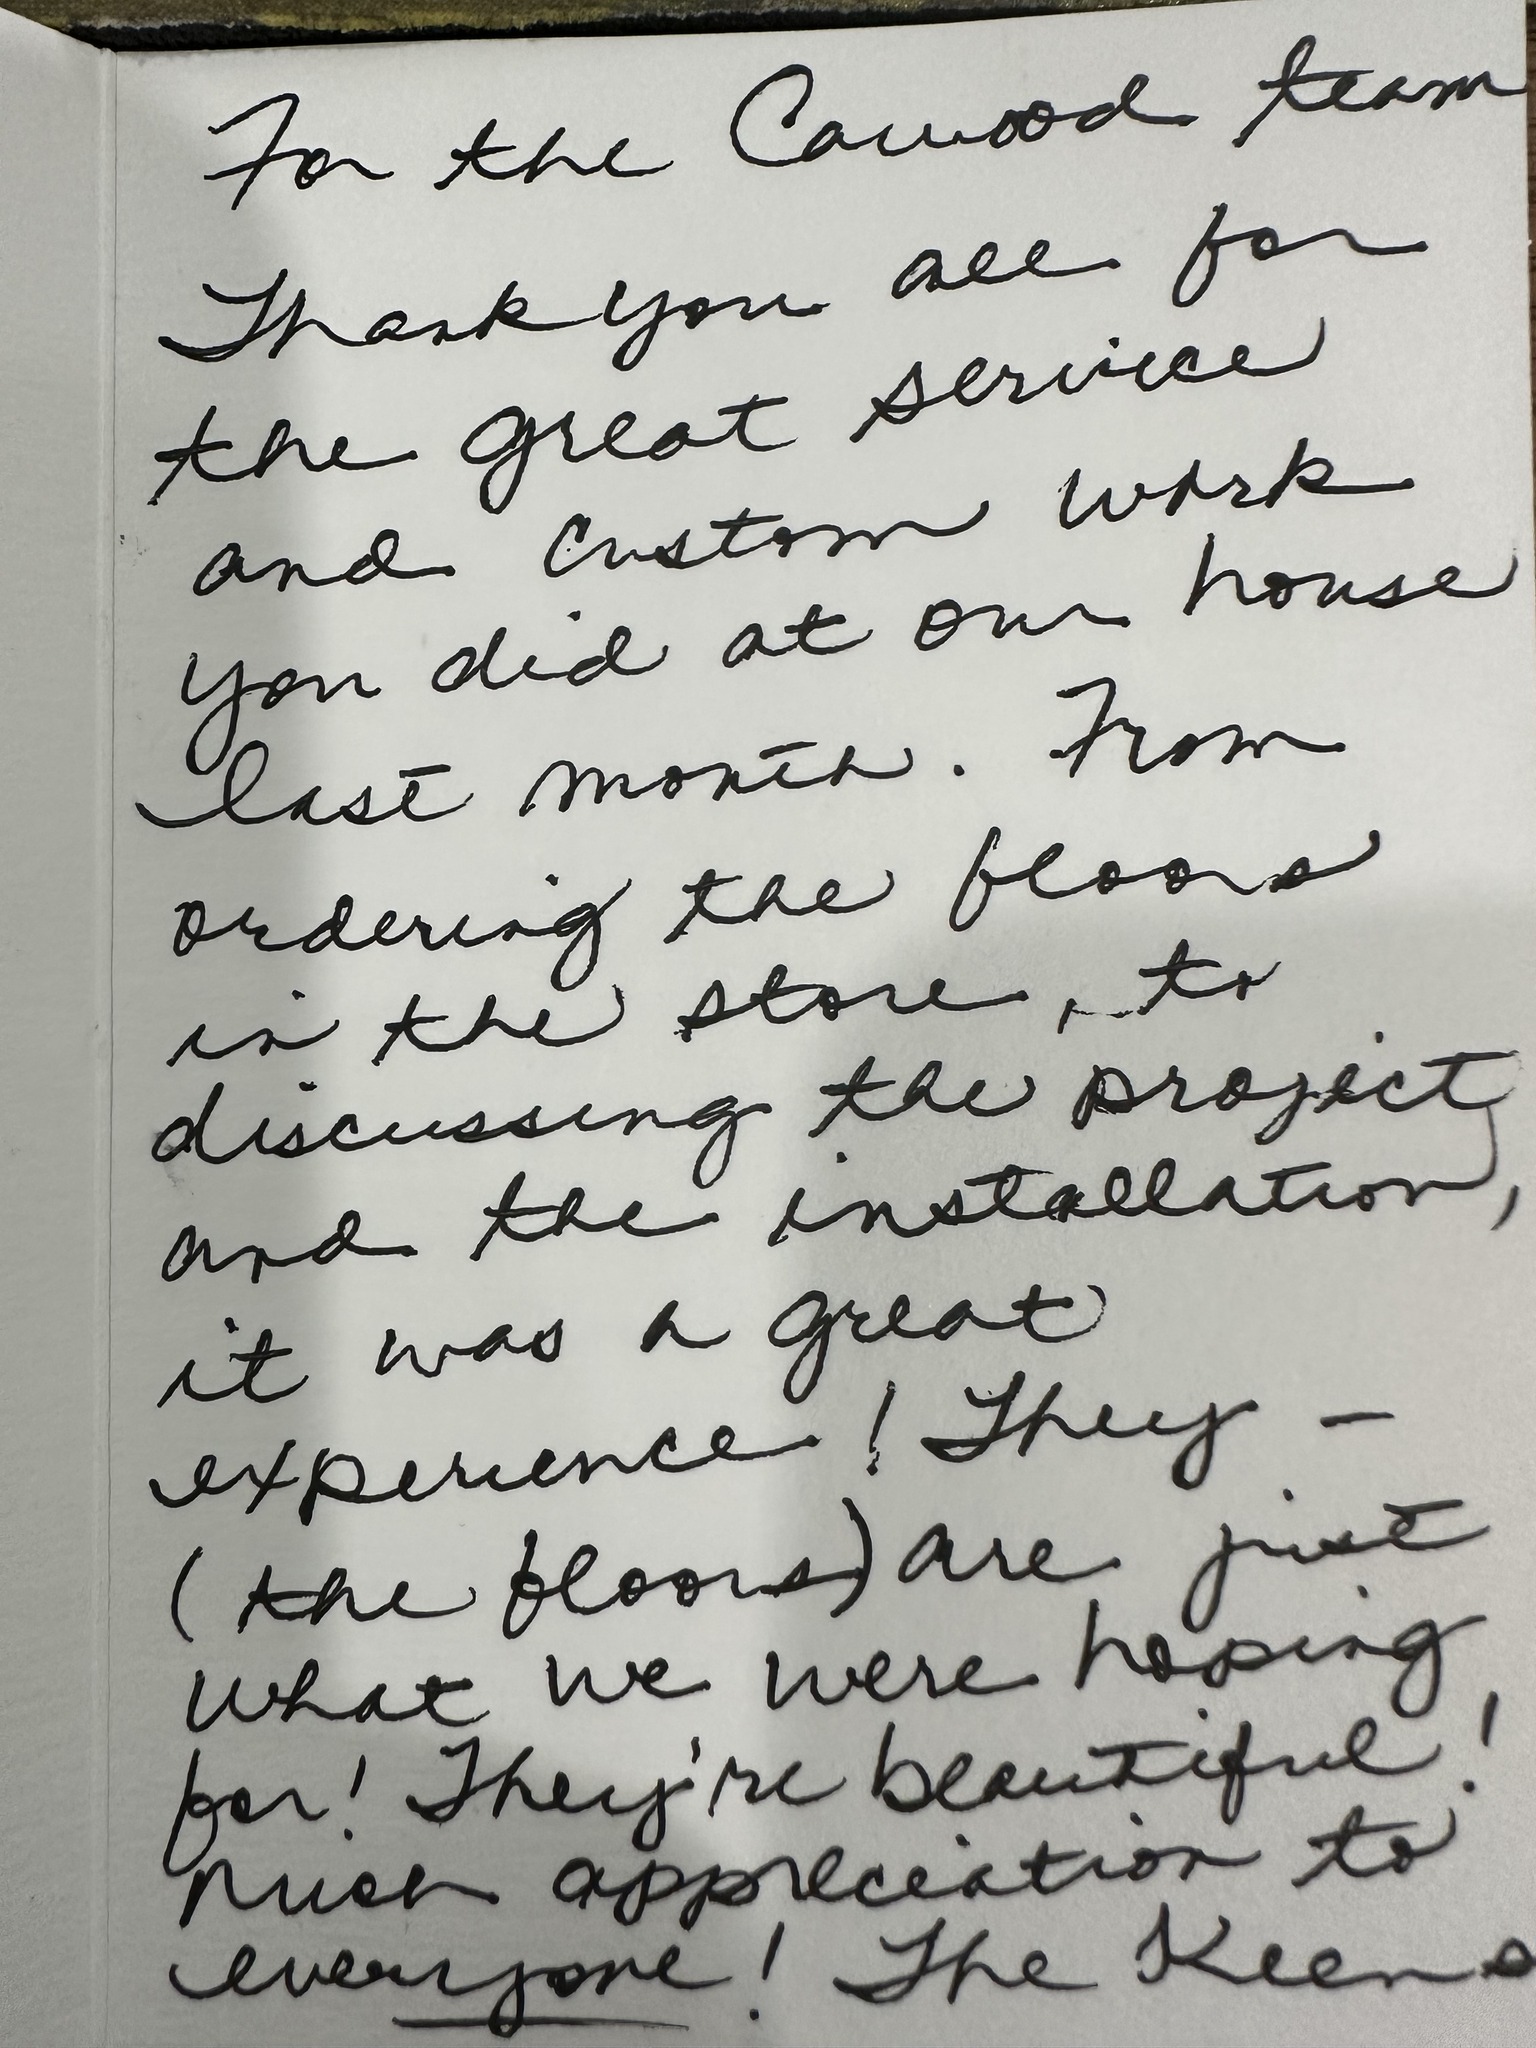 For the Cawood team
Thank you all for
the great service
and custom work
you did at our house
last month. From
ordering the floors
in the store, to
discussing the project,
and the installation,
it was a great
experience! They –
(the floors) are just
what we were hoping
for! They're beautiful!
Much appreciation to
everyone! The Keens